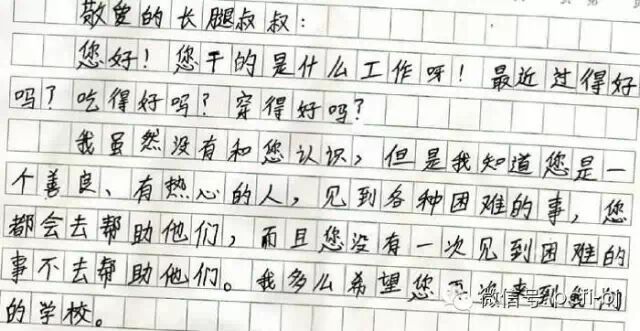 敬爱的长腿叔叔：
您好！您干的是什么工作呀！最近过得好
吗？吃得好吗？穿得好吗？
我虽然没有和您认识，但是我知道您是一
个善良、有热心的人，见到各种困难的事，您
都会去帮助他们，而且您没有一次见到困难的
事不去帮助他们。我多么希望您来到我们
的学校。
微信号: